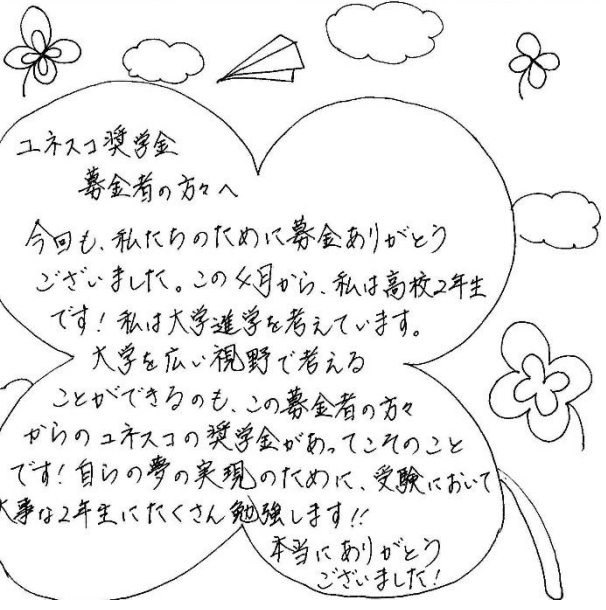 ユネスコ奨学金
募金者の方々へ
今回も、私たちのために募金ありがとう
ございました。この4月から、私は高校2年生
です！私は大学進学を考えています。
大学を広い視野で考える
ことができるのも、この募金者の方々
からのユネスコの奨学金があってこそのこと
です！自らの夢の実現のために、受験において
大事な2年生にたくさん勉強します!!
本当にありがとう
ございました！